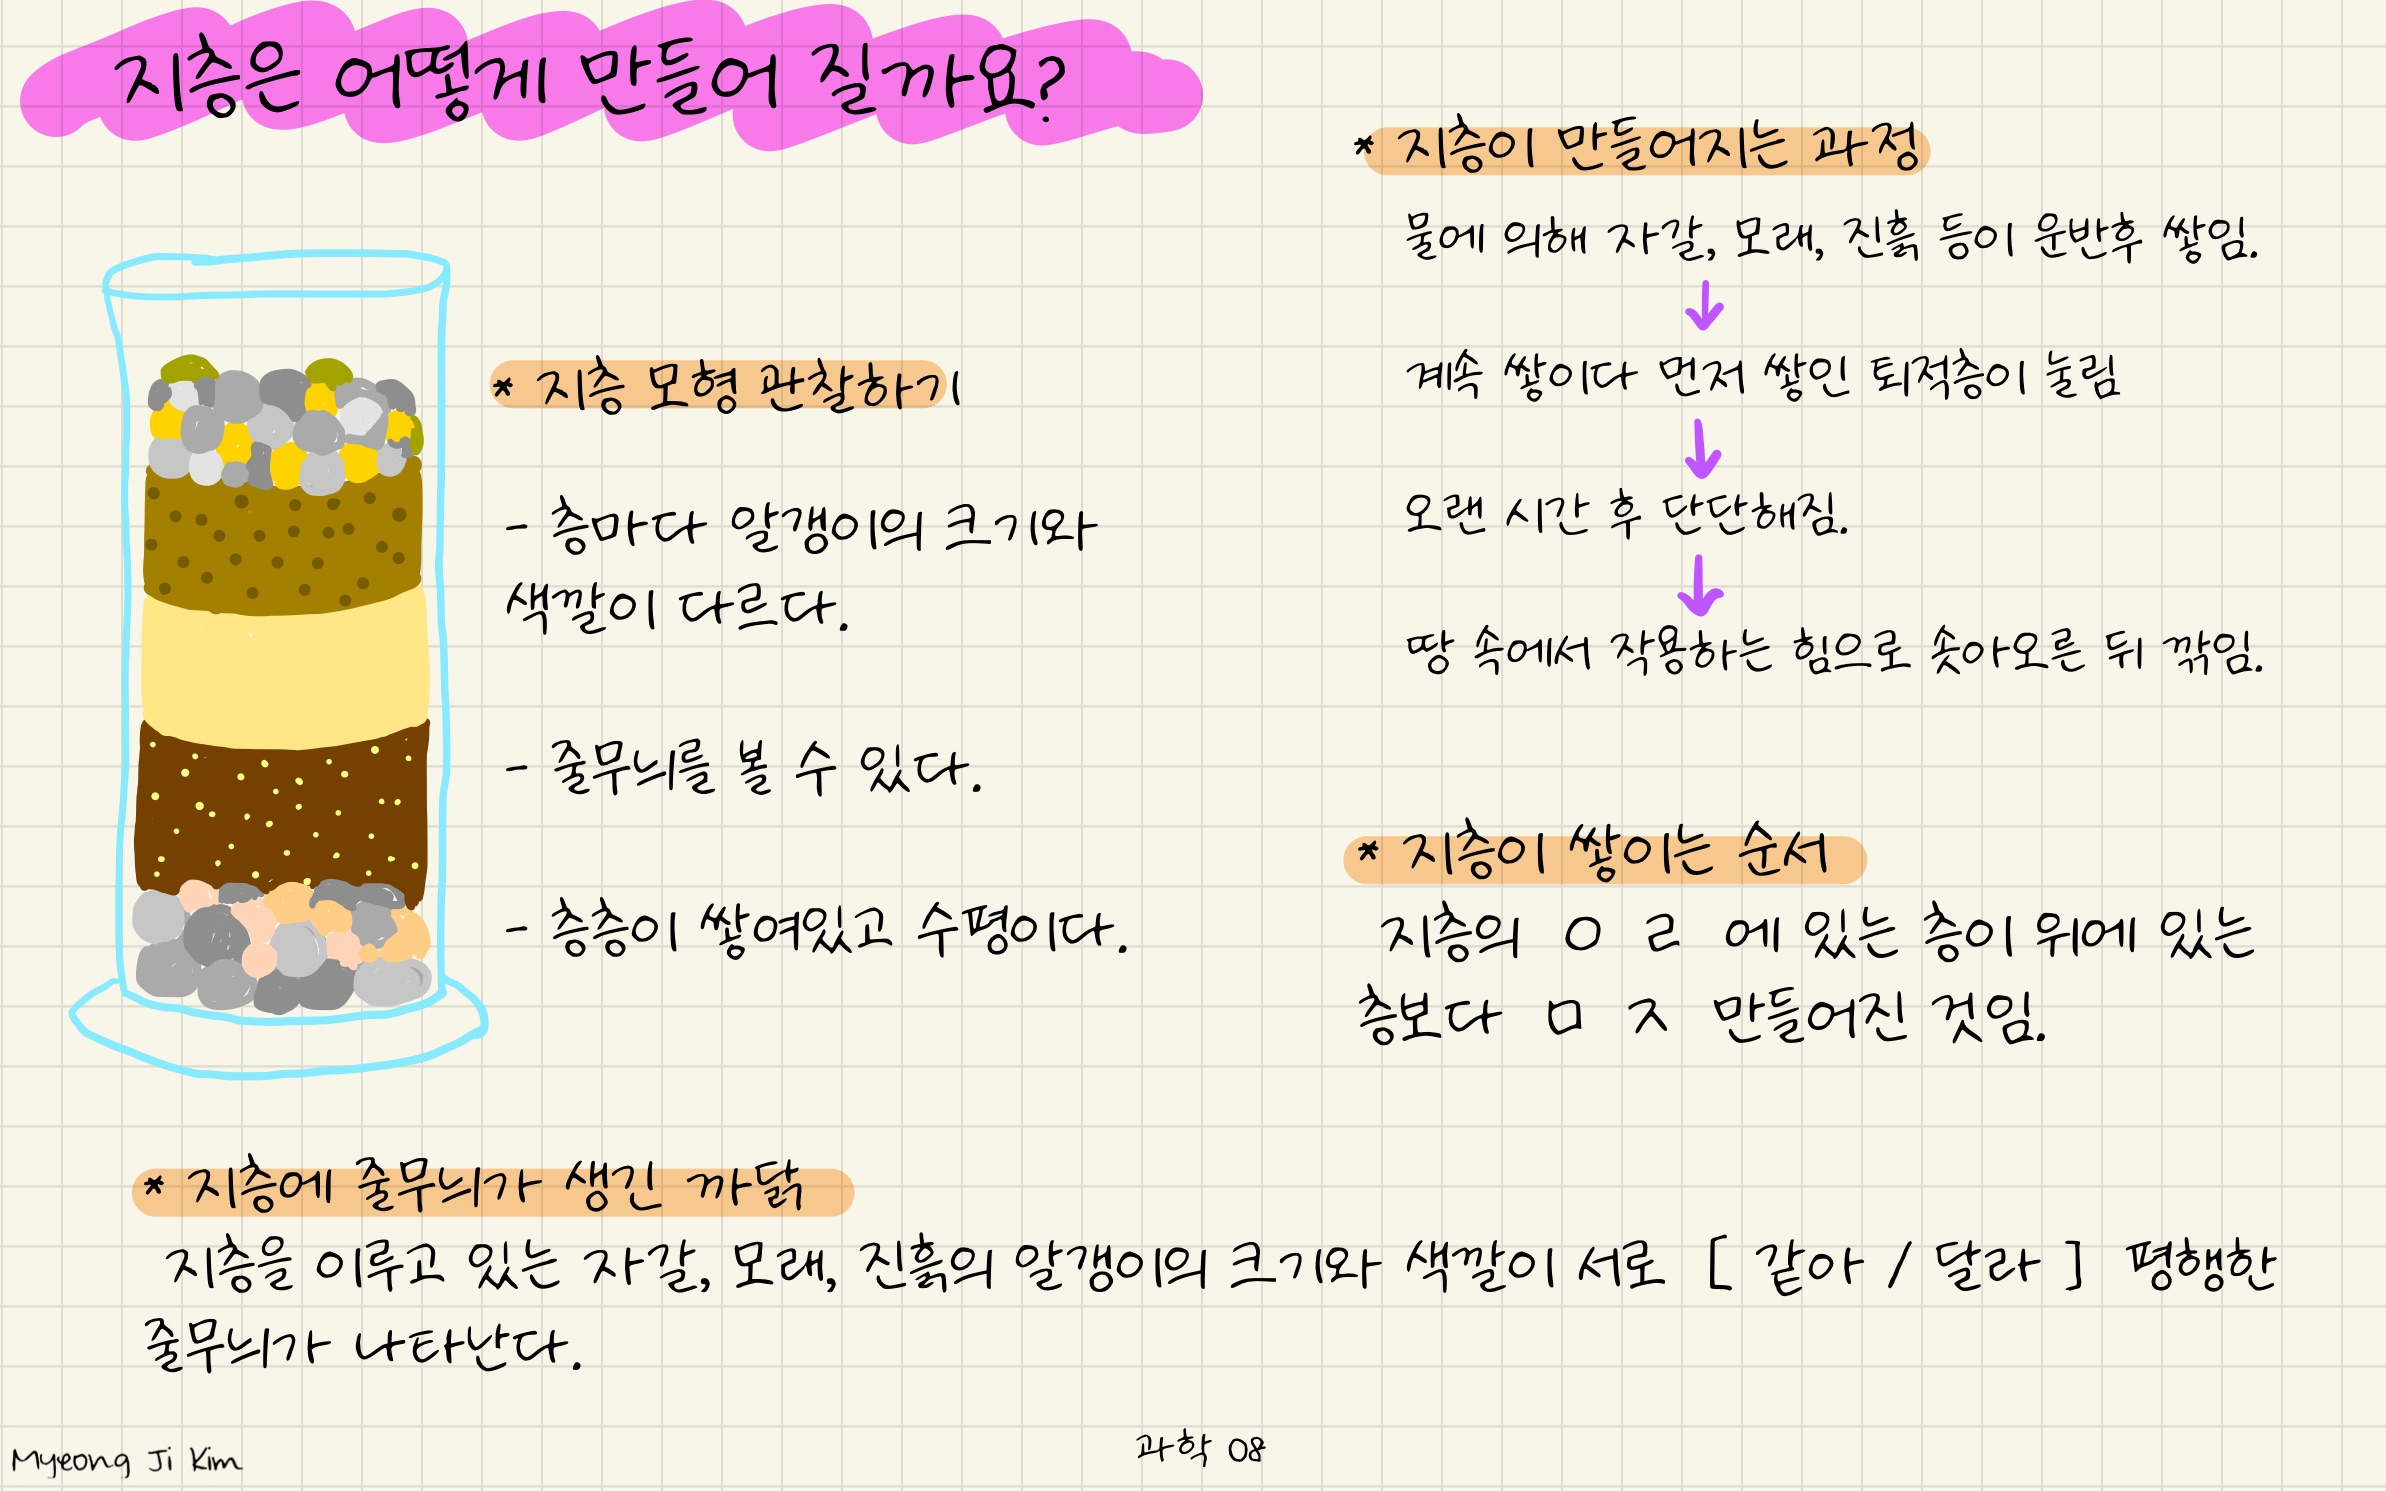 지층은 어떻게 만들어 질까요?
* 지층 모형 관찰하기
- 층마다 알갱이의 크기와
색깔이 다르다.
- 줄무늬를 볼 수 있다.
- 층층이 쌓여있고 수평이다.
* 지층이 만들어지는 과정
물에 의해 자갈, 모래, 진흙 등이 운반후 쌓임.
↓
계속 쌓이다 먼저 쌓인 퇴적층이 눌림
↓
오랜 시간 후 단단해짐.
↓
땅 속에서 작용하는 힘으로 솟아오른 뒤 깎임.
* 지층이 쌓이는 순서
지층의 ㅇ ㄹ 에 있는 층이 위에 있는
층보다 ㅁ ㅈ 만들어진 것임.
* 지층에 줄무늬가 생긴 까닭
지층을 이루고 있는 자갈, 모래, 진흙의 알갱이의 크기와 색깔이 서로 [ 같아 / 달라 ] 평행한
줄무늬가 나타난다.
Myeong Ji Kim
과학 08